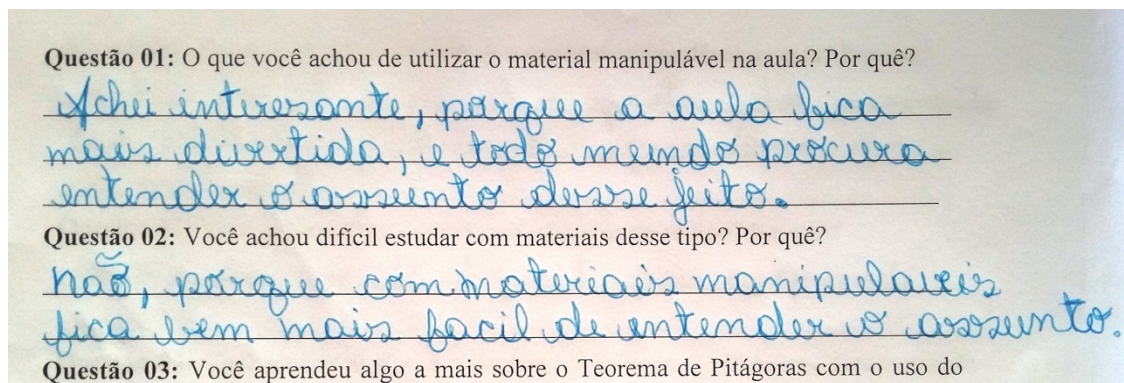 Questão 01: O que você achou de utilizar o material manipulável na aula? Por quê?
Achei interesante, porque a aula fica
mais divertida, e todo mundo procura
entender o assunto desse jeito.
Questão 02: Você achou difícil estudar com materiais desse tipo? Por quê?
não, porque com materiais manipulaveis
fica bem mais facil de entender o assunto.
Questão 03: Você aprendeu algo a mais sobre o Teorema de Pitágoras com o uso do